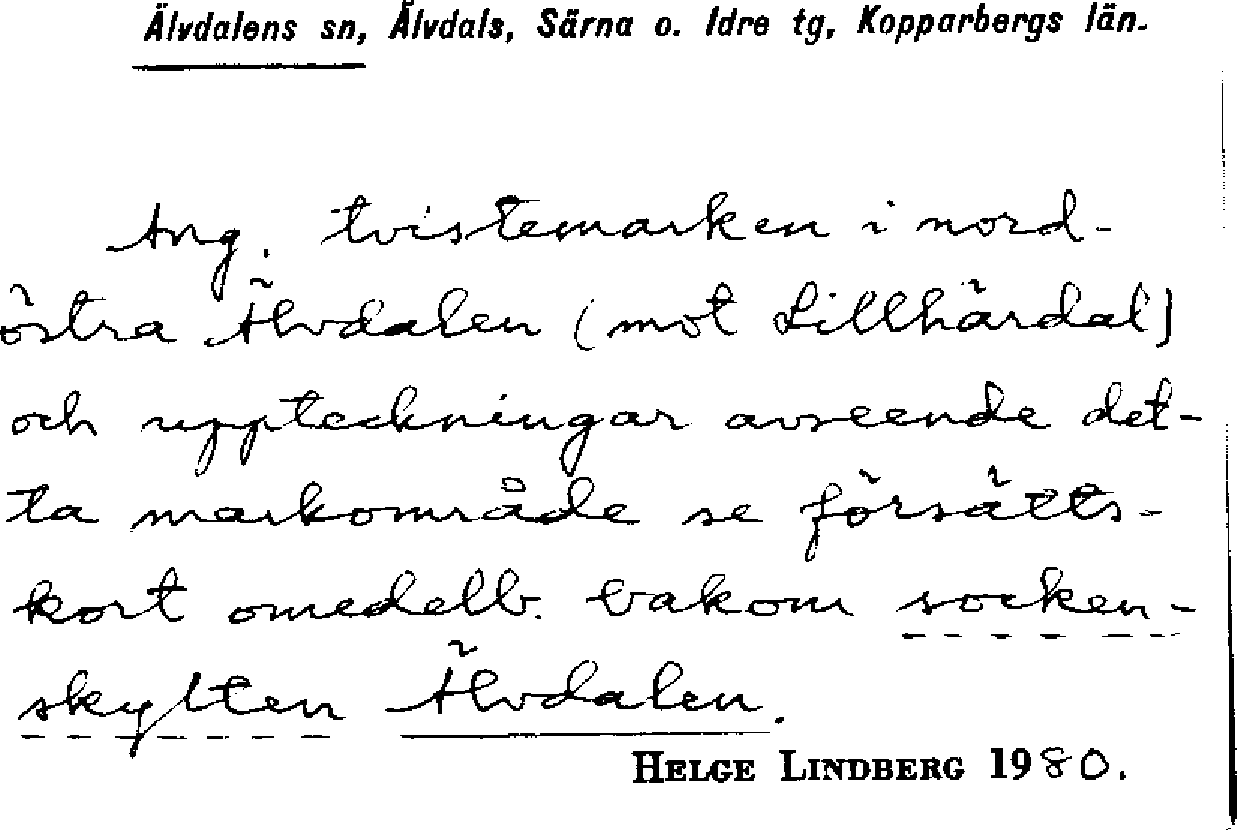 Älvdalens sn, Älvdals, Särna o. Idre tg, Kopparbergs län.
Ang. tvistemarken i nord-
östra Älvdalen (mot Lillhärdal)
och uppteckningar avseende det-
ta markområde se försätts-
kort omedelb. bakom socken-
skylten Älvdalen.
HELGE LINDBERG 1980.